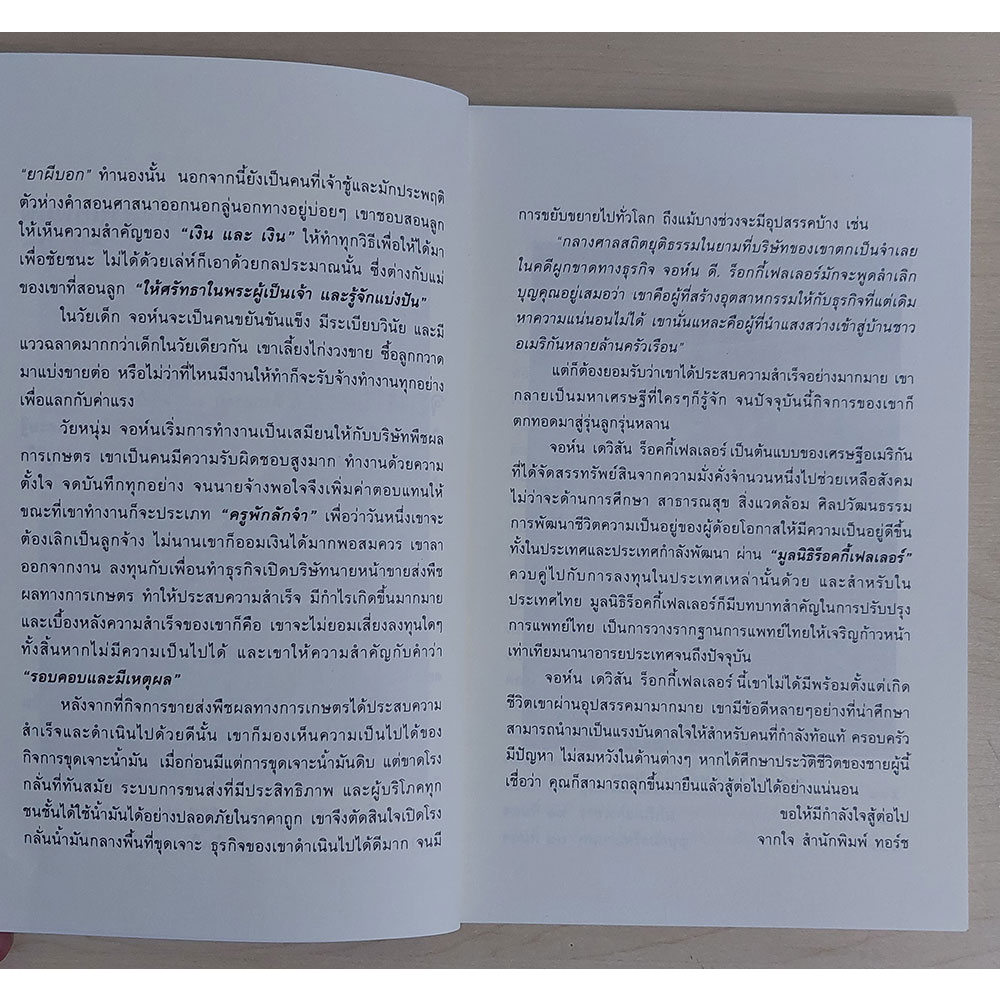 “ยาผีบอก” ทำนองนั้น นอกจากนี้ยังเป็นคนที่เจ้าชู้และมักประพฤติ
ตัวห่างคำสอนศาสนาออกนอกลู่นอกทางอยู่บ่อยๆ เขาชอบสอนลูก
ให้เห็นความสำคัญของ “เงิน และ เงิน” ให้ทำทุกวิธีเพื่อให้ได้มา
เพื่อชัยชนะ ไม่ได้ด้วยเล่ห์ก็เอาด้วยกลประมาณนั้น ซึ่งต่างกับแม่
ของเขาที่สอนลูก “ให้ศรัทธาในพระผู้เป็นเจ้า และรู้จักแบ่งปัน”
ในวัยเด็ก จอห์นจะเป็นคนขยันขันแข็ง มีระเบียบวินัย และมี
แววฉลาดมากกว่าเด็กในวัยเดียวกัน เขาเลี้ยงไก่งวงขาย ซื้อลูกกวาด
มาแบ่งขายต่อ หรือไม่ว่าที่ไหนมีงานให้ทำก็จะรับจ้างทำงานทุกอย่าง
เพื่อแลกกับค่าแรง
วัยหนุ่ม จอห์นเริ่มการทำงานเป็นเสมียนให้กับบริษัทพืชผล
การเกษตร เขาเป็นคนมีความรับผิดชอบสูงมาก ทำงานด้วยความ
ตั้งใจ จดบันทึกทุกอย่าง จนนายจ้างพอใจจึงเพิ่มค่าตอบแทนให้
ขณะที่เขาทำงานก็จะประเภท “ครูพักลักจำ” เพื่อว่าวันหนึ่งเขาจะ
ต้องเลิกเป็นลูกจ้าง ไม่นานเขาก็ออมเงินได้มากพอสมควร เขาลา
ออกจากงาน ลงทุนกับเพื่อนทำธุรกิจเปิดบริษัทนายหน้าขายส่งพืช
ผลทางการเกษตร ทำให้ประสบความสำเร็จ มีกำไรเกิดขึ้นมากมาย
และเบื้องหลังความสำเร็จของเขาก็คือ เขาจะไม่ยอมเสี่ยงลงทุนใดๆ
ทั้งสิ้นหากไม่มีความเป็นไปได้ และเขาให้ความสำคัญกับคำว่า
“รอบคอบและมีเหตุผล”
หลังจากที่กิจการขายส่งพืชผลทางการเกษตรได้ประสบความ
สำเร็จและดำเนินไปด้วยดีนั้น เขาก็มองเห็นความเป็นไปได้ของ
กิจการขุดเจาะน้ำมัน เมื่อก่อนมีแต่การขุดเจาะน้ำมันดิบ แต่ขาดโรง
กลั่นที่ทันสมัย ระบบการขนส่งที่มีประสิทธิภาพ และผู้บริโภคทุก
ชนชั้นได้ใช้น้ำมันได้อย่างปลอดภัยในราคาถูก เขาจึงตัดสินใจเปิดโรง
กลั่นน้ำมันกลางพื้นที่ขุดเจาะ ธุรกิจของเขาดำเนินไปได้ดีมาก จนมี
การขยับขยายไปทั่วโลก ถึงแม้บางช่วงจะมีอุปสรรคบ้าง เช่น
“กลางศาลสถิตยุติธรรมในยามที่บริษัทของเขาตกเป็นจำเลย
ในคดีผูกขาดทางธุรกิจ จอห์น ดี. ร็อกกี้เฟลเลอร์มักจะพูดลำเลิก
บุญคุณอยู่เสมอว่า เขาคือผู้ที่สร้างอุตสาหกรรมให้กับธุรกิจที่แต่เดิม
หาความแน่นอนไม่ได้ เขานั่นแหละคือผู้ที่นำแสงสว่างเข้าสู่บ้านชาว
อเมริกันหลายล้านครัวเรือน”
แต่ก็ต้องยอมรับว่าเขาได้ประสบความสำเร็จอย่างมากมาย เขา
กลายเป็นมหาเศรษฐีที่ใครๆก็รู้จัก จนปัจจุบันนี้กิจการของเขาก็
ตกทอดมาสู่รุ่นลูกรุ่นหลาน
จอห์น เดวิสัน ร็อคกี้เฟลเลอร์ เป็นต้นแบบของเศรษฐีอเมริกัน
ที่ได้จัดสรรทรัพย์สินจากความมั่งคั่งจำนวนหนึ่งไปช่วยเหลือสังคม
ไม่ว่าจะด้านการศึกษา สาธารณสุข สิ่งแวดล้อม ศิลปวัฒนธรรม
การพัฒนาชีวิตความเป็นอยู่ของผู้ด้อยโอกาสให้มีความเป็นอยู่ดีขึ้น
ทั้งในประเทศและประเทศกำลังพัฒนา ผ่าน “มูลนิธิร็อคกี้เฟลเลอร์”
ควบคู่ไปกับการลงทุนในประเทศเหล่านั้นด้วย และสำหรับใน
ประเทศไทย มูลนิธิร็อคกี้เฟลเลอร์ก็มีบทบาทสำคัญในการปรับปรุง
การแพทย์ไทย เป็นการวางรากฐานการแพทย์ไทยให้เจริญก้าวหน้า
เท่าเทียมนานาอารยประเทศจนถึงปัจจุบัน
จอห์น เดวิสัน ร็อกกี้เฟลเลอร์ นี้เขาไม่ได้มีพร้อมตั้งแต่เกิด
ชีวิตเขาผ่านอุปสรรคมามากมาย เขามีข้อดีหลายๆอย่างที่น่าศึกษา
สามารถนำมาเป็นแรงบันดาลใจให้สำหรับคนที่กำลังท้อแท้ ครอบครัว
มีปัญหา ไม่สมหวังในด้านต่างๆ หากได้ศึกษาประวัติชีวิตของชายผู้นี้
เชื่อว่า คุณก็สามารถลุกขึ้นมายืนแล้วสู้ต่อไปได้อย่างแน่นอน
ขอให้มีกำลังใจสู้ต่อไป
จากใจ สำนักพิมพ์ ทอร์ช